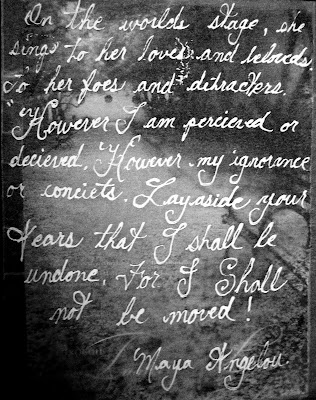 On the worlds stage, she
sings to her loves and beloveds.
to her foes and ditracters.
"However I am percieved or
decieved. However my ignorance
or conciets. Lay aside your
fears that I shall be
undone. For I Shall
not be moved!
Maya Angelou